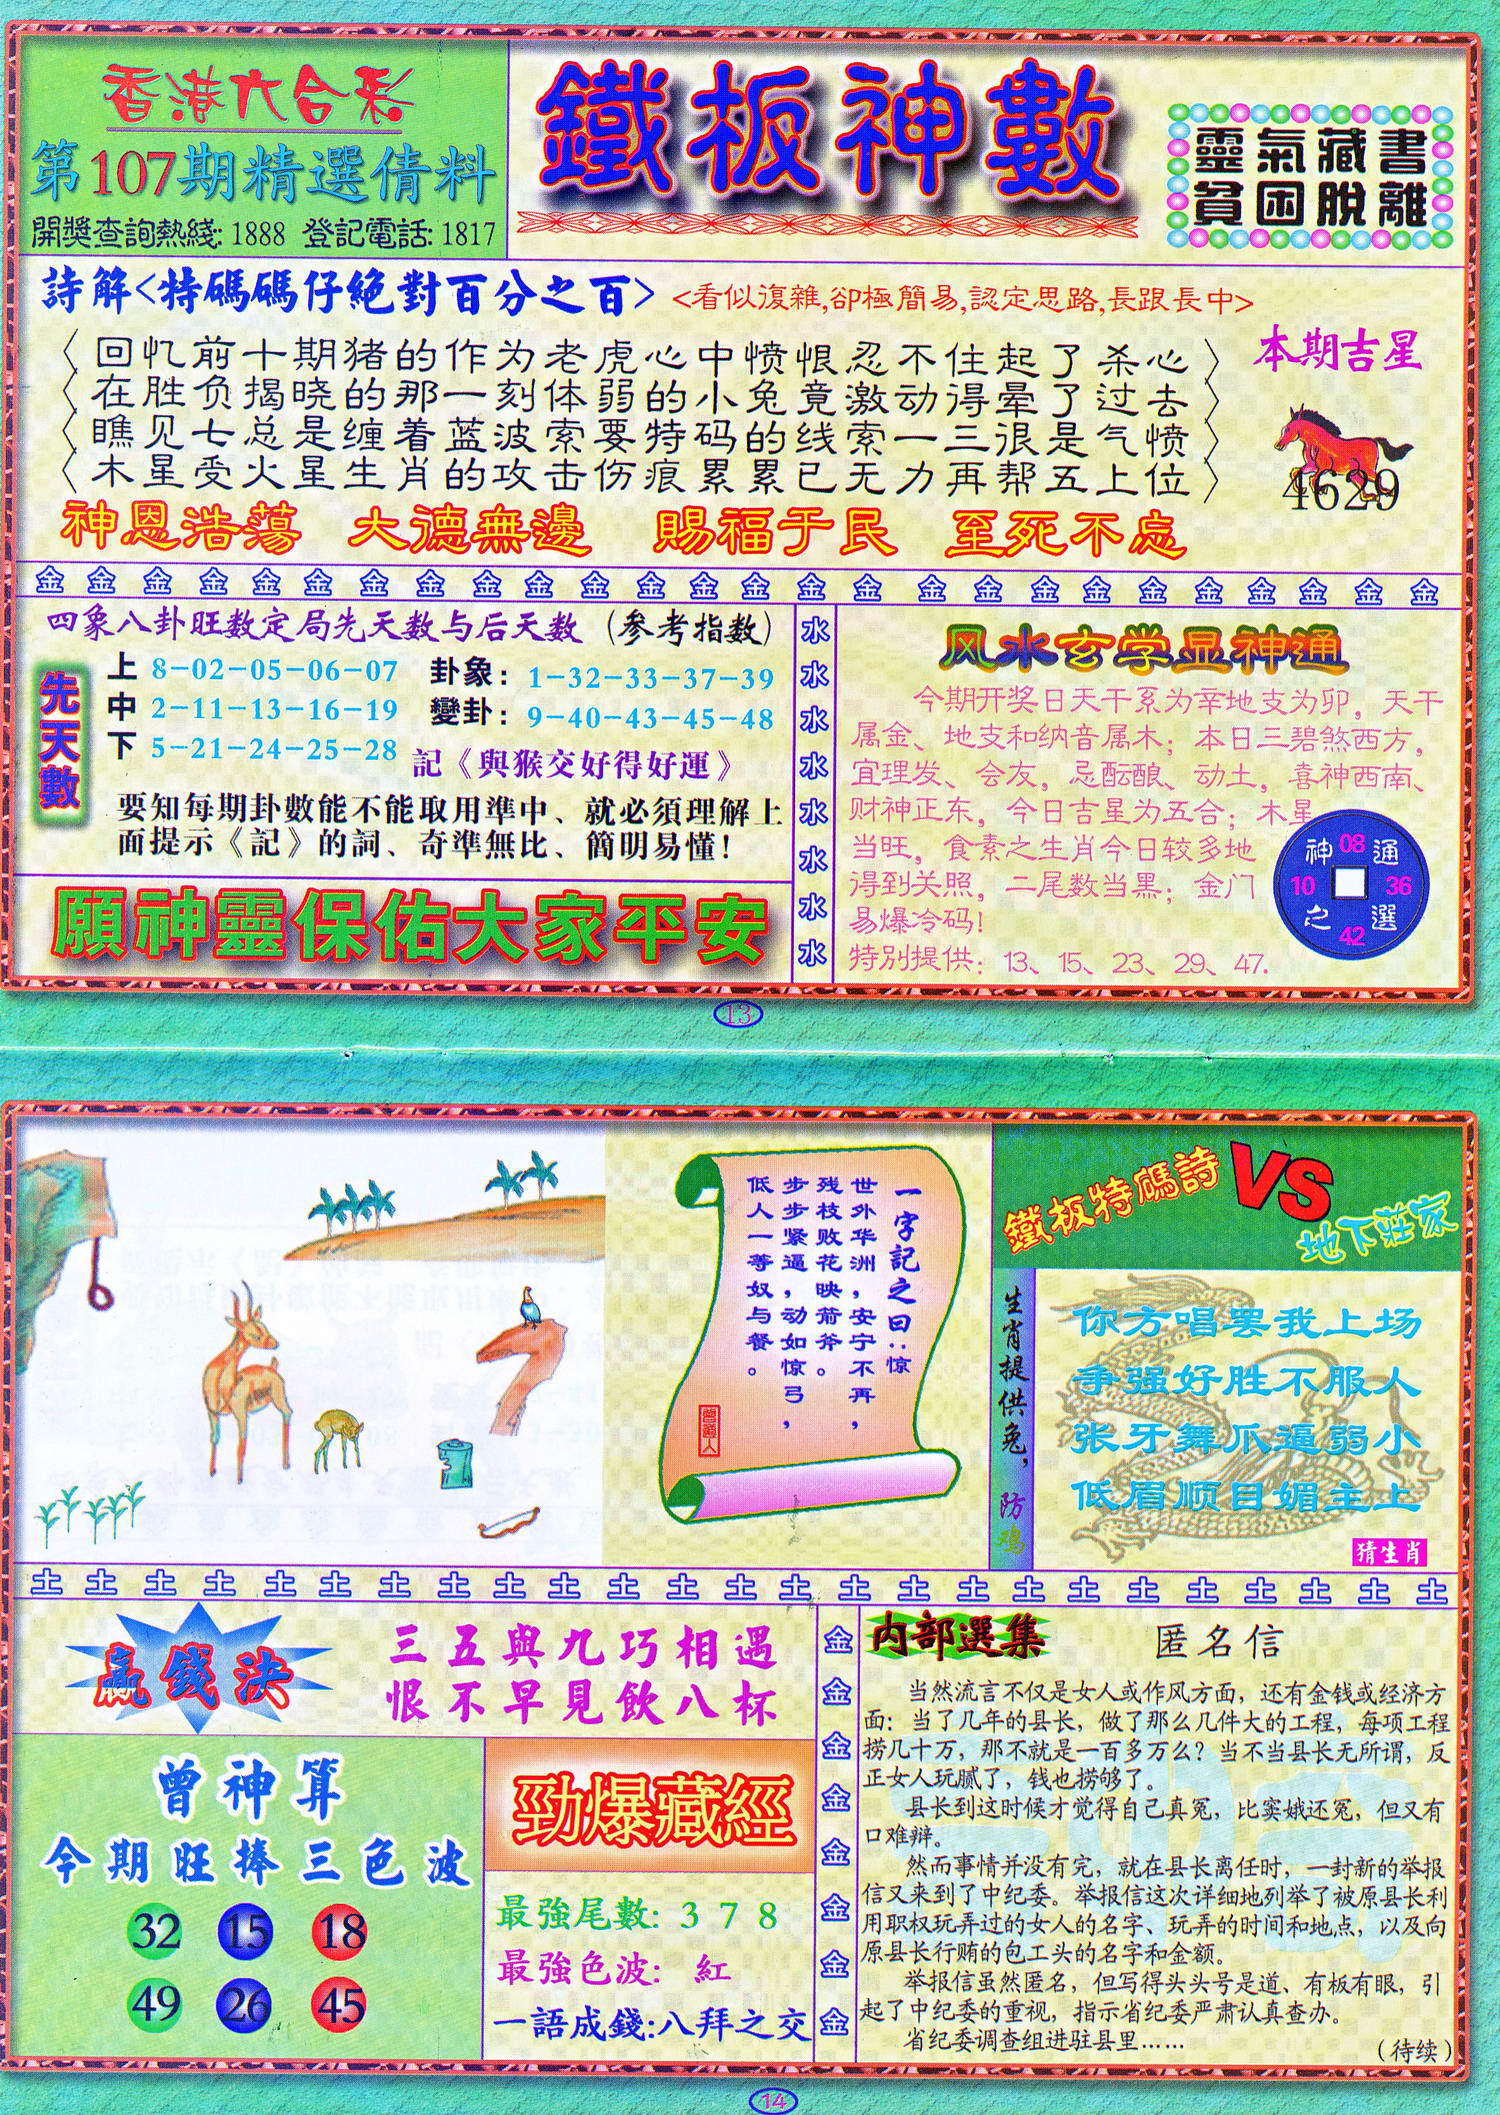 香港六合彩
第107期精選倩料
開獎查詢熱綫: 1888 登記電話: 1817
鐵板神數
靈氣藏書
貧困脫離
詩解<特碼碼仔絕對百分之百>
<看似復雜,卻極簡易,認定思路,長跟長中>
〈回忆前十期猪的作为老虎心中愤恨忍不住起了杀心〉
〈在胜负揭晓的那一刻体弱的小兔竟激动得晕了过去〉
〈瞧见七总是缠着蓝波索要特码的线索一三很是气愤〉
〈木星受火星生肖的攻击伤痕累累已无力再帮五上位〉
本期吉星
4629
神恩浩蕩 大德無邊 賜福于民 至死不忘
金 金 金 金 金 金 金 金 金 金 金 金 金 金 金 金 金 金 金 金 金 金 金 金 金 金
四象八卦旺数定局先天数与后天数（参考指数）
先天數
上 8-02-05-06-07
中 2-11-13-16-19
下 5-21-24-25-28
卦象：1-32-33-37-39
變卦：9-40-43-45-48
記《與猴交好得好運》
要知每期卦數能不能取用準中、就必須理解上
面提示《記》的詞、奇準無比、簡明易懂!
願神靈保佑大家平安
水
水
水
水
水
水
水
水
风水玄学显神通
今期开奖日天干系为辛地支为卯，天干
属金、地支和纳音属木；本日三碧煞西方，
宜理发、会友，忌酝酿、动土，喜神西南、
财神正东，今日吉星为五合；木星
当旺，食素之生肖今日较多地
得到关照，二尾数当黑；金门
易爆冷码!
特别提供：13、15、23、29、47.
神 08 通
10 36
之 42 選
13
一字記之曰：惊
世外华洲，安宁不再，
残枝败花映箭斧。
步步紧逼，动如惊弓，
低人一等奴与餐。
曾道人
鐵板特碼詩
VS
地下莊家
生肖提供兔，防鸡
你方唱罢我上场
争强好胜不服人
张牙舞爪逼弱小
低眉顺目媚主上
猜生肖
土 土 土 土 土 土 土 土 土 土 土 土 土 土 土 土 土 土 土 土 土 土 土 土 土
贏錢決
三五與九巧相遇
恨不早見飲八杯
曾神算
今期旺捧三色波
32 15 18
49 26 45
勁爆藏經
最強尾數: 3 7 8
最強色波: 紅
一語成錢:八拜之交
金
金
金
金
金
金
金
金
内部選集
匿名信
当然流言不仅是女人或作风方面，还有金钱或经济方
面：当了几年的县长，做了那么几件大的工程，每项工程
捞几十万，那不就是一百多万么？当不当县长无所谓，反
正女人玩腻了，钱也捞够了。
县长到这时候才觉得自己真冤，比窦娥还冤，但又有
口难辩。
然而事情并没有完，就在县长离任时，一封新的举报
信又来到了中纪委。举报信这次详细地列举了被原县长利
用职权玩弄过的女人的名字、玩弄的时间和地点，以及向
原县长行贿的包工头的名字和金额。
举报信虽然匿名，但写得头头号是道、有板有眼，引
起了中纪委的重视，指示省纪委严肃认真查办。
省纪委调查组进驻县里……
（待续）
14